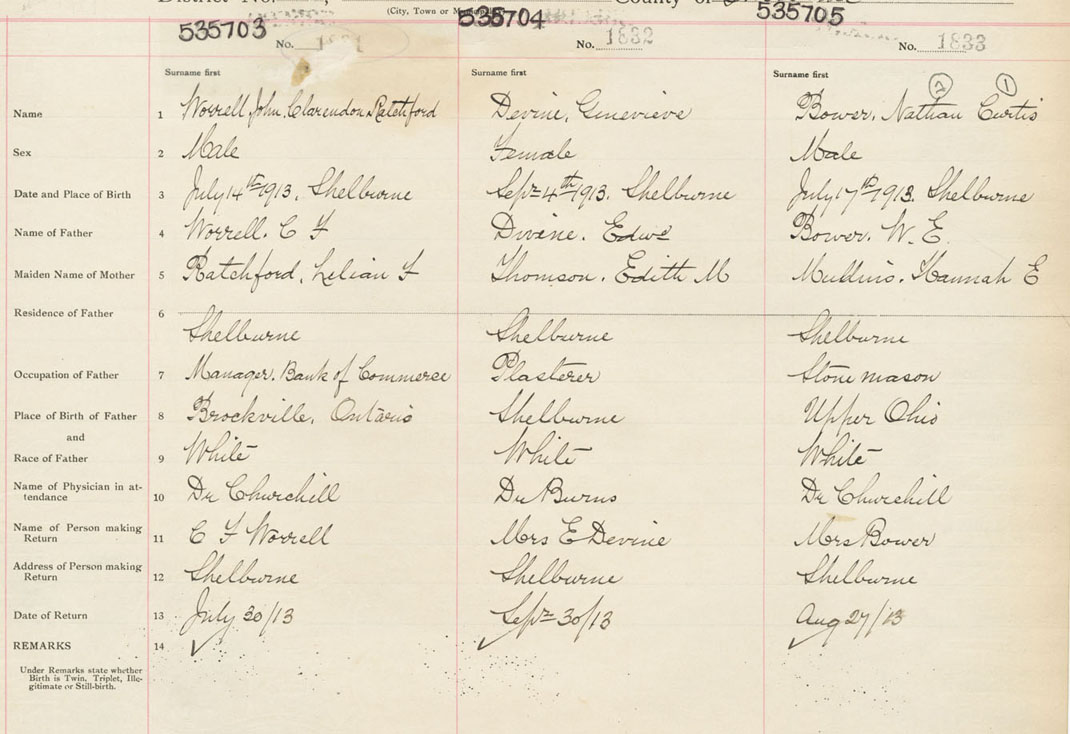 District No. County of
(City, Town or
535703 535704 535705
No. No. 1832 No. 1833
Surname first Surname first Surname first
2 1
Name 1 Worrell, John, Clarendon, Ratchford Devine, Genevieve Bower, Nathan Curtis
Sex 2 Male Female Male
Date and Place of Birth 3 July 14th 1913, Shelburne Sept 4th 1913. Shelburne July 17th 1913. Shelburne
Name of Father 4 Worrell. C F Divine. Edwd Bower. W. E.
Maiden Name of Mother 5 Ratchford, Lelian F Thomson. Edith M Mullins. Hannah E
Residence of Father 6
Shelburne Shelburne Shelburne
Occupation of Father 7 Manager. Bank of Commerse Plasterer Stone mason
Place of Birth of Father 8 Brockville, Ontario Shelburne Upper Ohio
and
Race of Father 9 White White White
Name of Physician in at-
tendance 10 Dr Churchill Dr Burns Dr Churchill
Name of Person making
Return 11 C F Worrell Mrs E Devine Mrs Bower
Address of Person making
Return 12 Shelburne Shelburne Shelburne
Date of Return 13 July 30/13 Sept 30/13 Aug 27/13
REMARKS 14
Under Remarks state whether
Birth is Twin, Triplet, Ille-
gitimate or Still-birth.